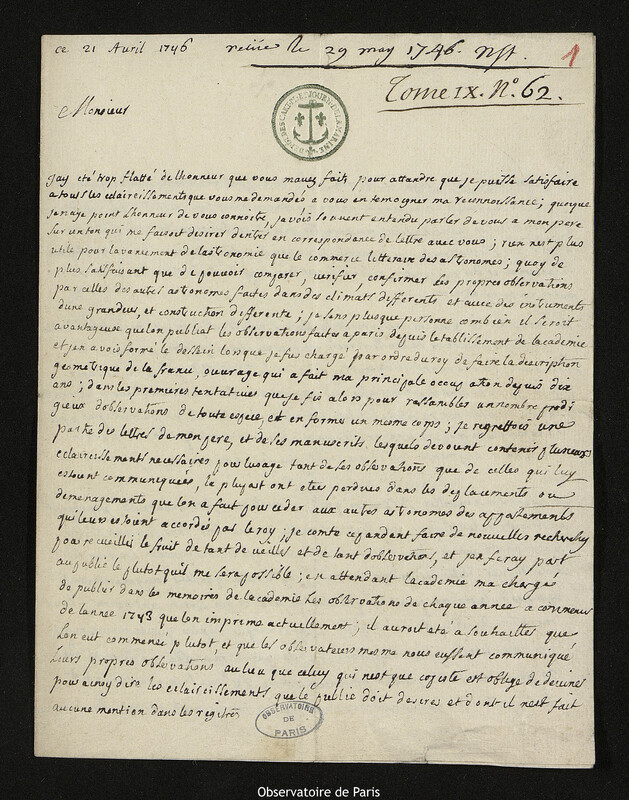 ce 21 Avril 1746 reçüe le 29 may 1746. Rst. 1
Tome IX. N.º 62.
Monsieur
DES CARTES ET JOURN. DE LA MARINE
Jay eté trop flatté de lhonneur que vous mavez fait, pour attandre que je puisse satisfaire
a tous les eclaircissements que vous me demandés a vous en temoigner ma reconnoissance; quoique
je naye point lhonneur de vous connoitre, javois souvent entendu parler de vous a mon pere
sur un ton qui me faisoit desirer dentrer en correspondance de lettre avec vous; rien nest plus
utile pour lavancement de lastronomie que le commerce litteraire des astronomes; quoy de
plus satisfaisant que de pouvoir comparer, verifier, confirmer les propres observations
par celles des autres astronomes faites dans des climats differents et avec des instruments
dune grandeur, et construction differente; je sens plus que personne combien il seroit
avantageuse que lon publiat les observations faites a paris depuis letablissement de lacademie
et jen avois formé le dessein lorsque je fus chargé par ordre du roy de faire la description
geometrique de la france, ouvrage qui a fait ma principale occupation depuis dix
ans; dans les premieres tentatives que je fis alors pour rassembler un nombre prodi
gieux dobservations de toute espece, et en former un mesme corps; je regrettois une
partie des lettres de mon pere, et de ses manuscrits lesquels devoient contenir plusieurs
eclaircissements necessaires pour lusage tant de ses observations que de celles qui luy
estoient communiquées, la pluspart ont etés perdues dans les deplacements ou
demenagements que lon a fait pour ceder aux autres astronomes des appartements
qui leur estoient accordés par le roy; je comte cependant faire de nouvelles recherches
pour recueillir le fruit de tant de veilles et de tant dobservations, et jen feray part
au public le plutot quil me sera possible; en attendant lacademie ma chargé
de publier dans les memoires de lacademie les observations de chaque année a commencer
de lannee 1743 que lon imprime actuellement; il auroit eté a souhaitter que
lon eut commencé plutot, et que les observateurs mesme nous eussent communiqué
leurs propres observations au lieu que celuy qui nest que copiste est obligé de deviner
pour ainsy dire les eclaircissements que le public doit desirer et dont il nest fait
aucune mention dans les registres
OBSERVATOIRE
DE
PARIS
Observatoire de Paris